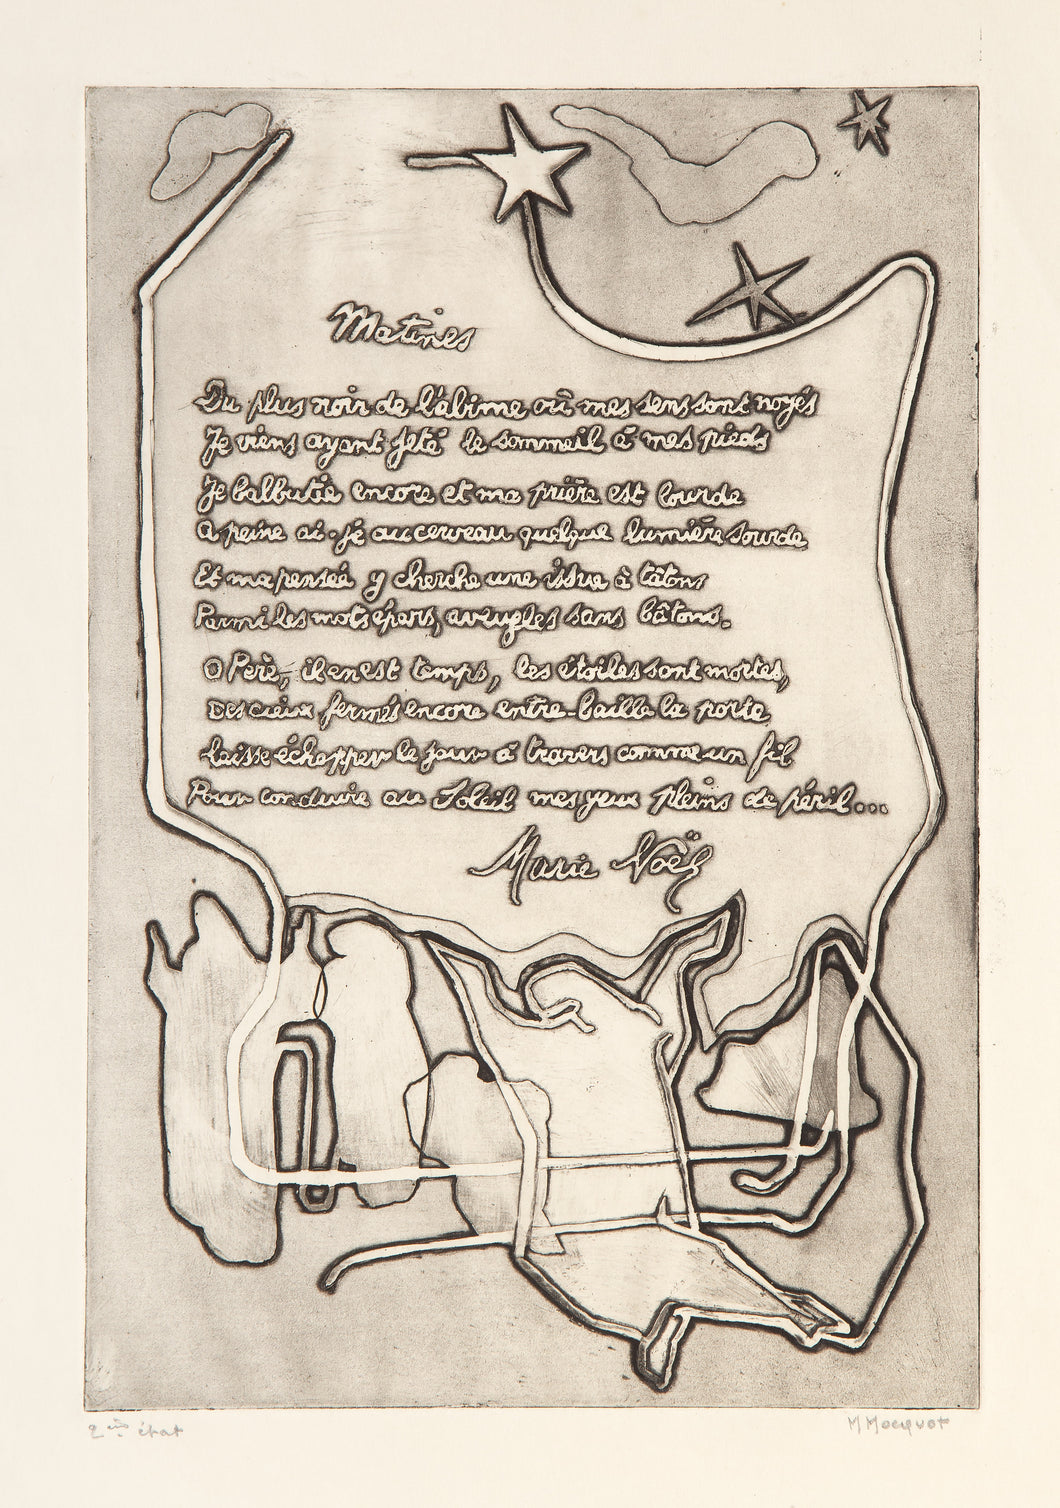 Matines
Du plus noir de l'abime où mes sens sont noyés
Je viens ayant jeté le sommeil à mes pieds
Je balbutie encore et ma prière est lourde
A peine ai-je au cerveau quelque lumière sourde
Et ma pensée y cherche une issue à tâtons
Parmi les mots épars, aveugles sans bâtons.
O Père, il en est temps, les étoiles sont mortes,
Des cieux fermés encore entre-baille la porte
Laisse échapper le jour à travers comme un fil
Pour conduire au Soleil mes yeux pleins de péril...
Marie Noël
2ème état
M Mocquot